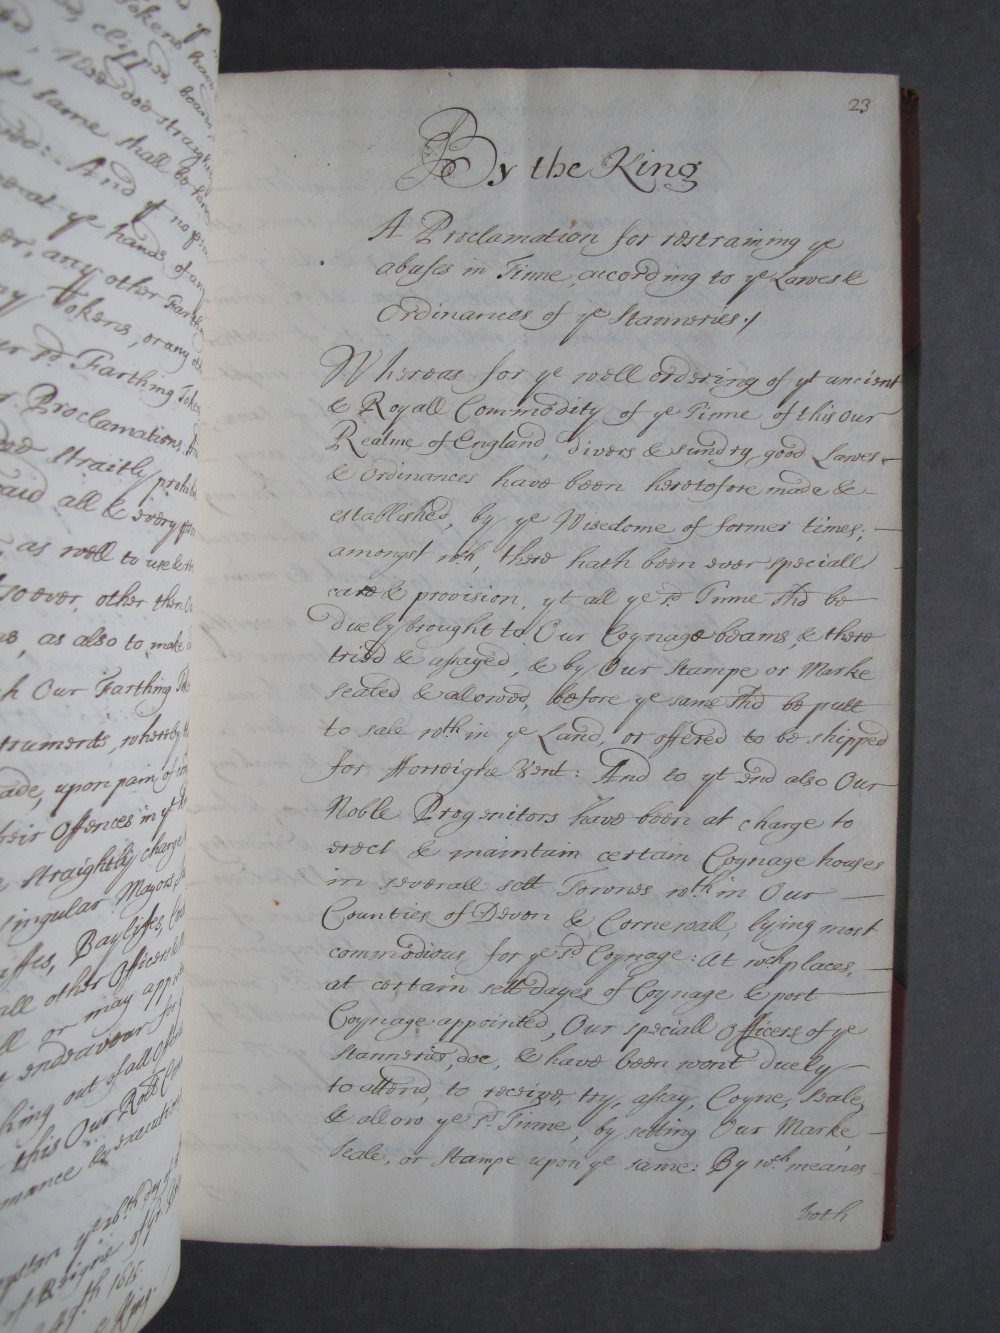 23
By the King
A Proclamation for restraining ye
abuses in Tinne, according to ye Lawes &
Ordinances of ye Stanneries./
Whereas for ye well ordering of yt ancient
& Royall Commodity of ye Tinne of this Our
Realme of England, divers & sundry good Lawes
& Ordinances have been heretofore made &
established, by ye Wisedome of former times;
amongst wch, there hath been ever speciall
care & provision, yt all ye sd Tinne shd be
duely brought to Our Coynage beams, & there
tried & assayed, & by Our Stampe or Marke
sealed & allowed, before ye same shd be putt
to sale wthin ye Land, or offered to be shipped
for fforreigne Vent: And to yt end also Our
Noble Progenitors have been at charge to
erect & maintain certain Coynage houses
in severall sett Townes wthin Our
Counties of Devon & Cornewall, lying most
commodious for ye sd Coynage: At wch places,
at certain sett dayes of Coynage & post
Coynage appointed, Our speciall Officers of ye
Stanneries, doe, & have been wont duely
to attend, to receive, try, assay, Coyne, Seale,
& allow ye sd Tinne, by setting Our Marke
Seale, or Stampe upon ye same: By wch meanes
both
And yt no
any other Farth
my Tokens, or any
Farthing Token
Proclamations
straitly prohib
all & every
as well to use
soever, other then
as also to make
Our Farthing
whereby
upon pain of
their Offences in yt
straightly charge
singular Mayors
Bayliffes,
all other Officers
or may
endeavour for
out of all
this Our
execution
ye 26th day of
of
1615.